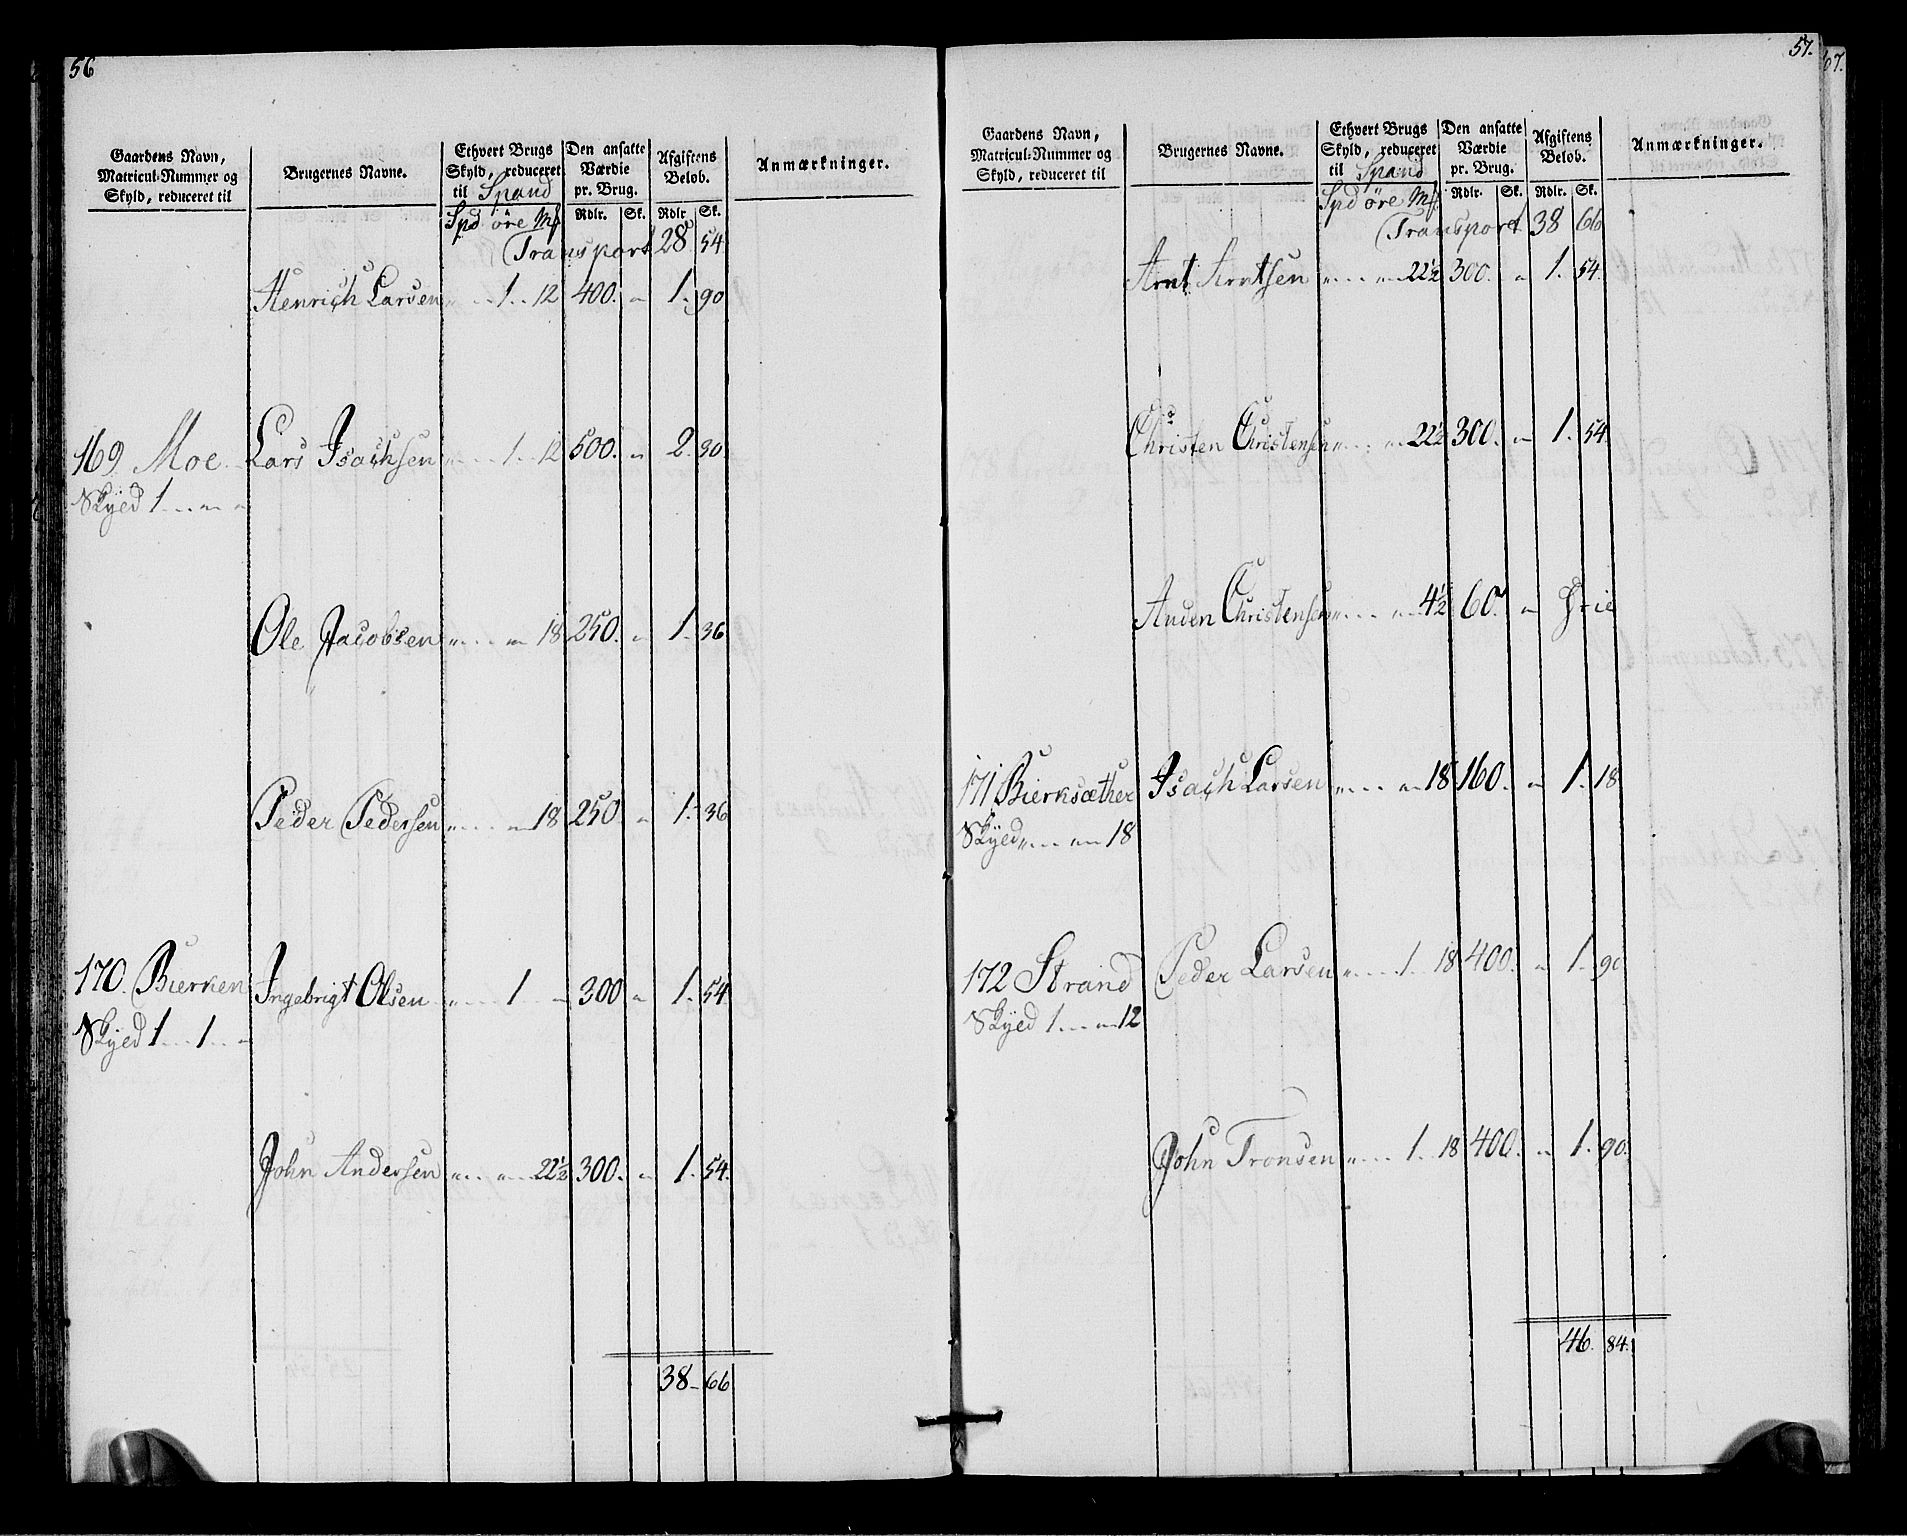 56
Gaardens Navn, Matricul-Nummer og Skyld, reduceret til | Brugernes Navne. | Ethvert Brugs Skyld, reduceret til Spand | Den ansatte Værdie pr. Brug. | Afgiftens Beløb. | Anmærkninger.
Spd öre Mk | Rdlr. | Sk. | Rdlr. | Sk.
Transport 28 54
Henrich Larsen „ 1 12 400. „ 1. 90
169 Moe Lars Isachsen „ 1 12 500. „ 2. 30
Skyld 1 „ „
Ole Jacobsen „ „ 18 250. „ 1. 36
Peder Pedersen „ „ 18 250 „ 1. 36
170. Bierken Ingebrigt Olsen „ 1 „ 300 „ 1. 54
Skyld 1 1 „
John Andersen „ „ 22½ 300. „ 1. 54.
38 66
57.
Gaardens Navn, Matricul-Nummer og Skyld, reduceret til | Brugernes Navne. | Ethvert Brugs Skyld, reduceret til Spand | Den ansatte Værdie pr. Brug. | Afgiftens Beløb. | Anmærkninger.
Spd öre Mk | Rdlr. | Sk. | Rdlr. | Sk.
Transport 38 66
Arnt Arntsen „ „ 22½ 300. „ 1. 54.
Christen Christensen „ „ 22½ 300. „ 1. 54
Anden Christensen „ „ 4½ 60. „ Frie
171 Bierksæther Isach Larsen „ „ 18 160. „ 1. 18
Skyld „ „ 18
172 Strand Peder Larsen „ 1 18 400. „ 1. 90
Skyld 1 „ 12
John Tronsen „ 1. 18 400. „ 1. 90.
46. 84.